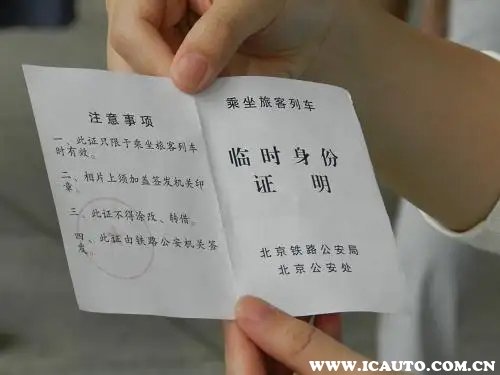 注意事项
一、此证只限于乘坐旅客列车
时有效。
二、相片上须加盖签发机关印
章。
三、此证不得涂改、转借。
四、此证由铁路公安机关签
发。
乘坐旅客列车
临时身份
证明
北京铁路公安局
北京公安处
WWW.ICAUTO.COM.CN